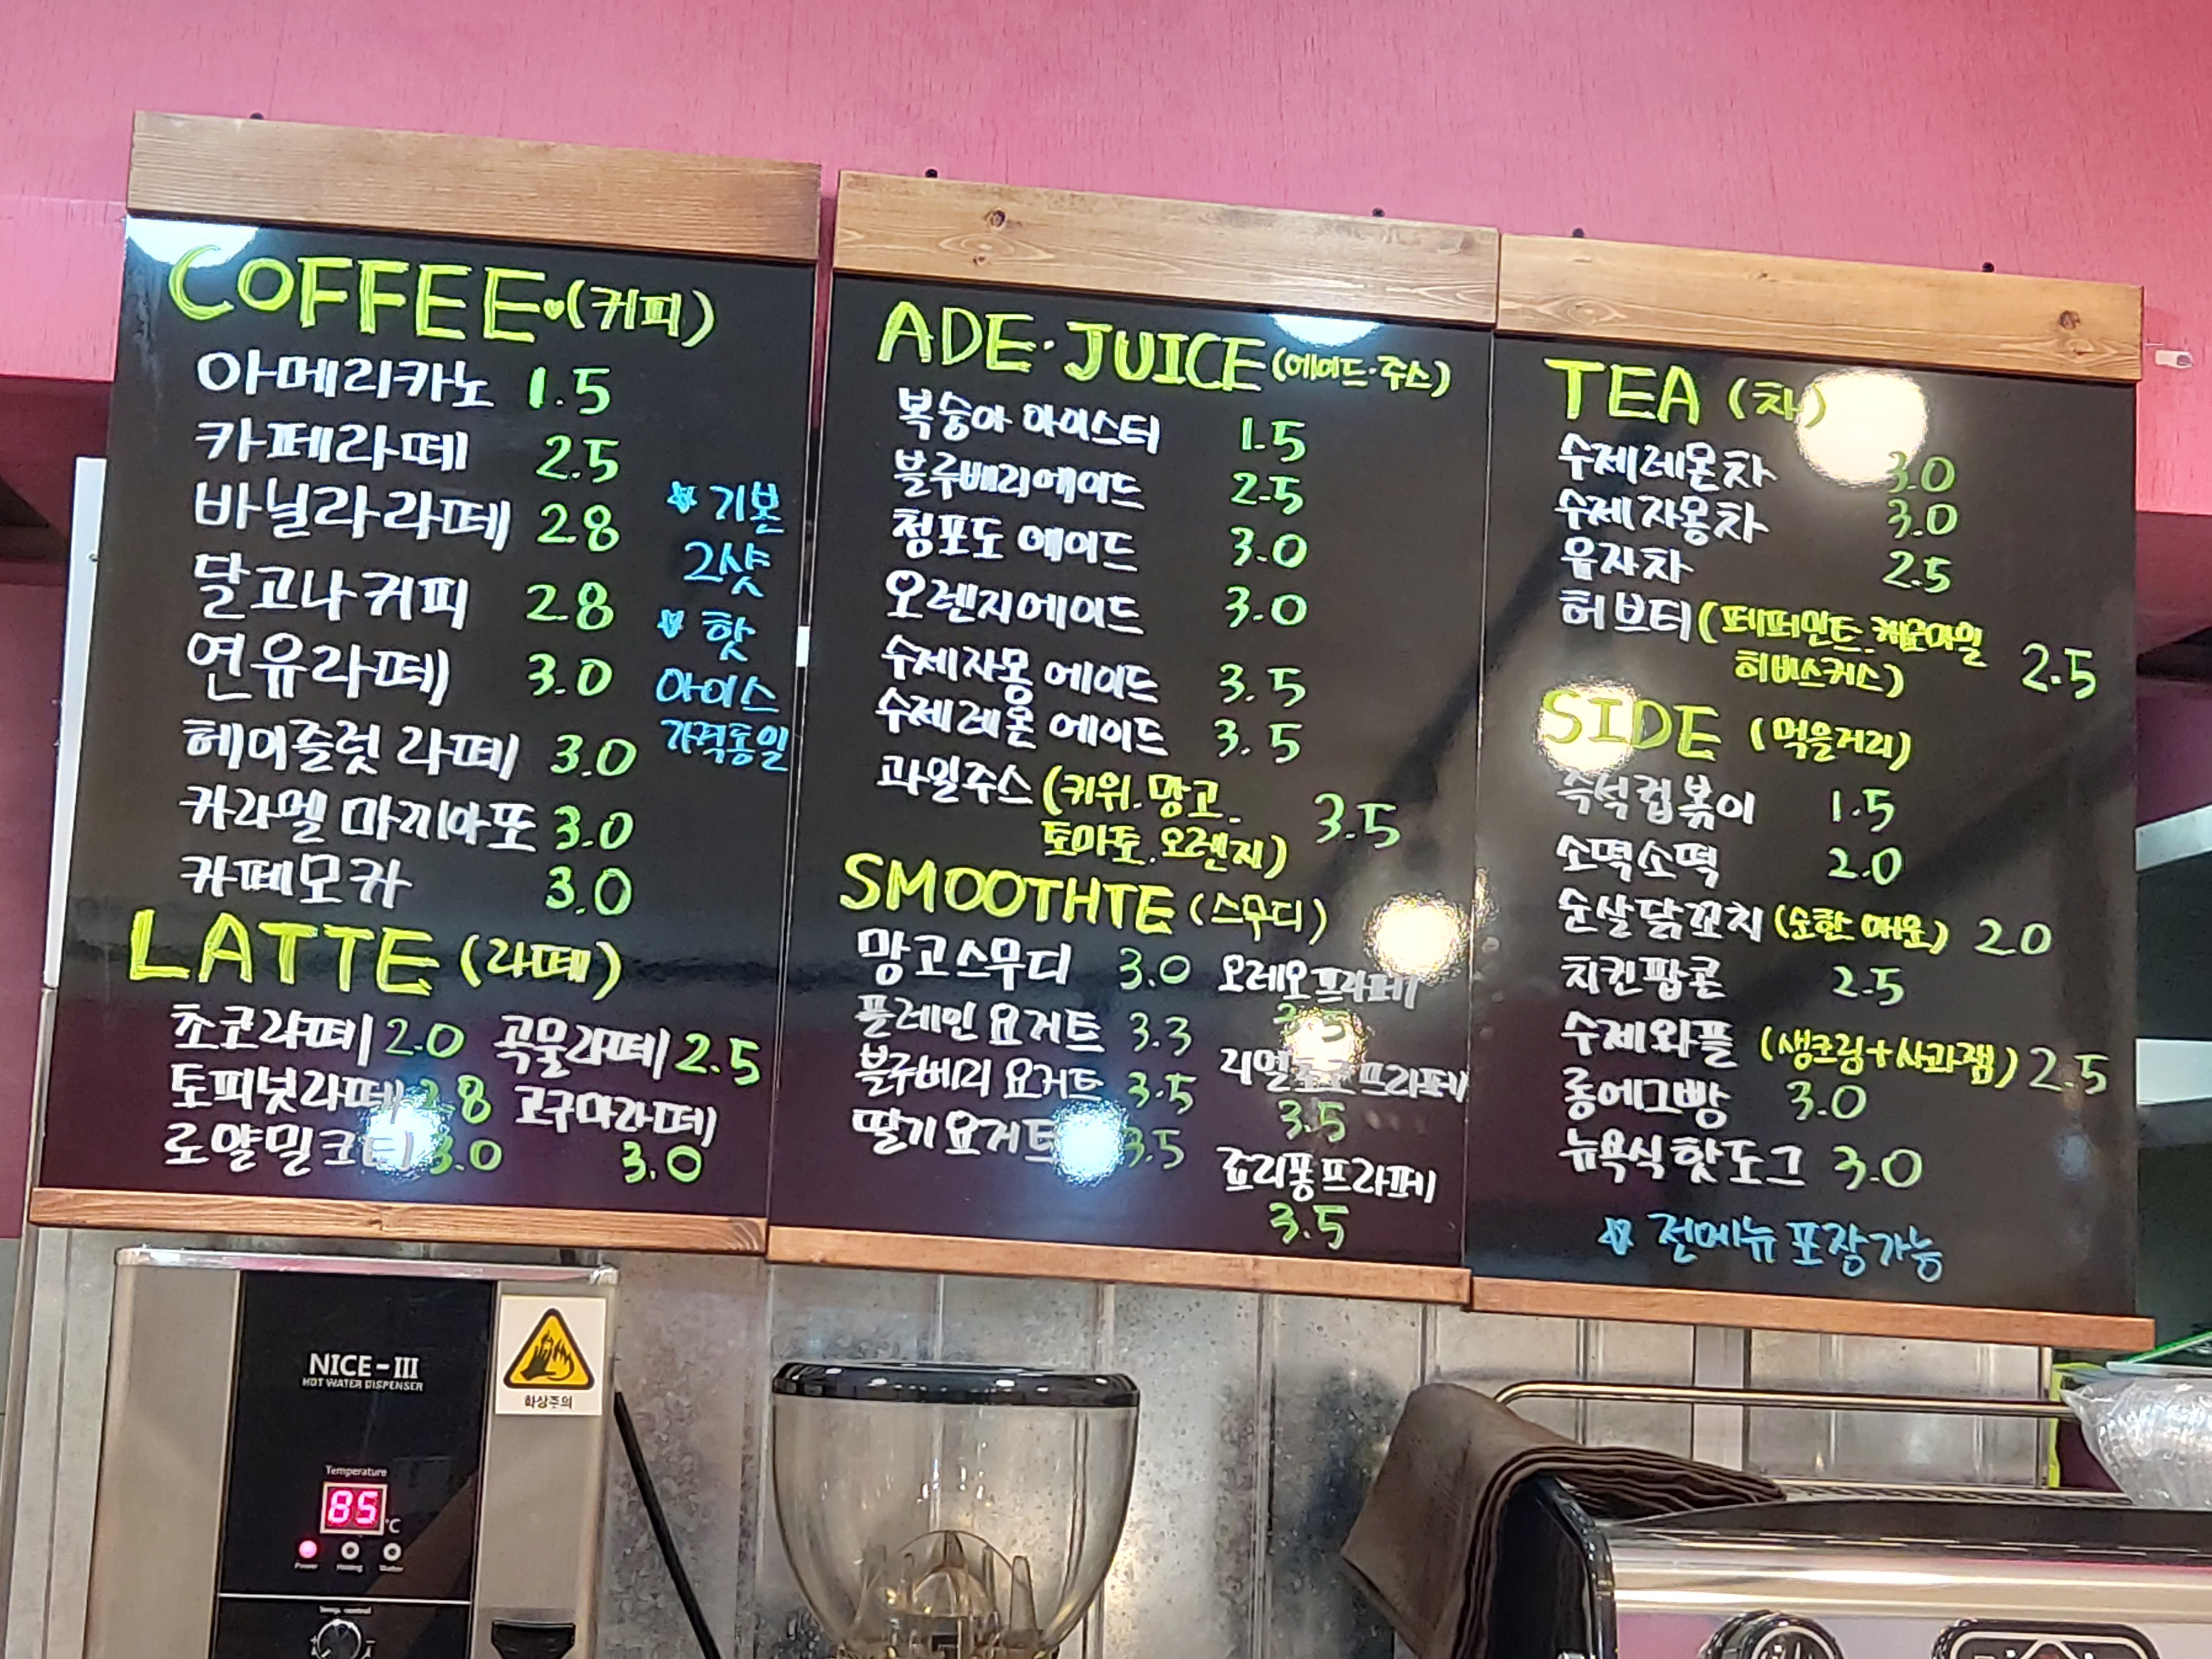 COFFEE (커피)
아메리카노 1.5
카페라떼 2.5
바닐라라떼 2.8
달고나커피 2.8
연유라떼 3.0
헤이즐럿 라떼 3.0
카라멜 마끼아또 3.0
카페모카 3.0
☆ 기본
2샷
☆ 핫
아이스
가격동일
LATTE (라떼)
초코라떼 2.0 곡물라떼 2.5
토피넛라떼 2.8 고구마라떼
로얄밀크티 3.0 3.0
ADE·JUICE (에이드·주스)
복숭아 아이스티 1.5
블루베리에이드 2.5
청포도 에이드 3.0
오렌지에이드 3.0
수제자몽 에이드 3.5
수제레몬 에이드 3.5
과일주스 (키위. 망고. 3.5
토마토. 오렌지)
SMOOTHIE (스무디)
망고스무디 3.0
플레인 요거트 3.3
블루베리 요거트 3.5
딸기요거트 3.5
오레오프라페
3.5
프라페
3.5
죠리퐁프라페
3.5
TEA (차)
수제레몬차 3.0
수제자몽차 3.0
유자차 2.5
허브티 (페퍼민트. 캐모마일 2.5
히비스커스)
SIDE (먹을거리)
즉석컵볶이 1.5
소떡소떡 2.0
순살닭꼬치 (순한 매운) 2.0
치킨팝콘 2.5
수제와플 (생크림+사과잼) 2.5
롱에그빵 3.0
뉴욕식핫도그 3.0
☆ 전메뉴 포장가능
NICE-III
HOT WATER DISPENSER
화상주의
Temperature
85 °C
Power Heating Water
Temp. control